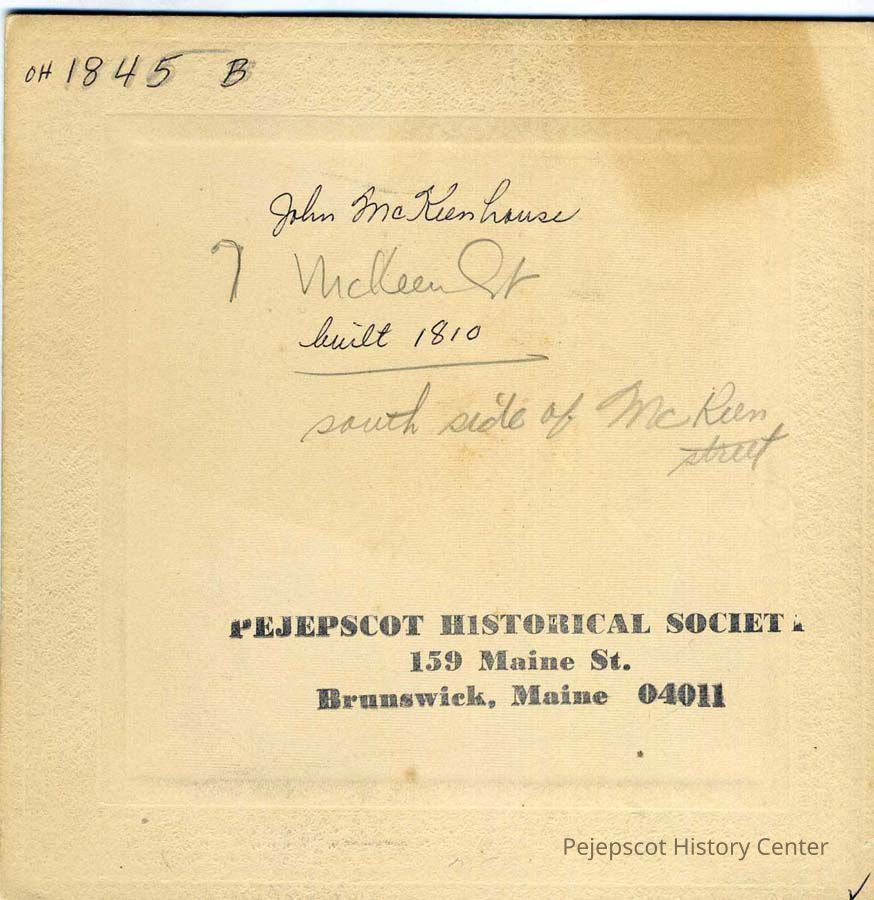 OH 1845 B
John McKeen house
7 McKeen St
built 1810
south side of McKeen
street
PEJEPSCOT HISTORICAL SOCIETY
159 Maine St.
Brunswick, Maine 04011
Pejepscot History Center